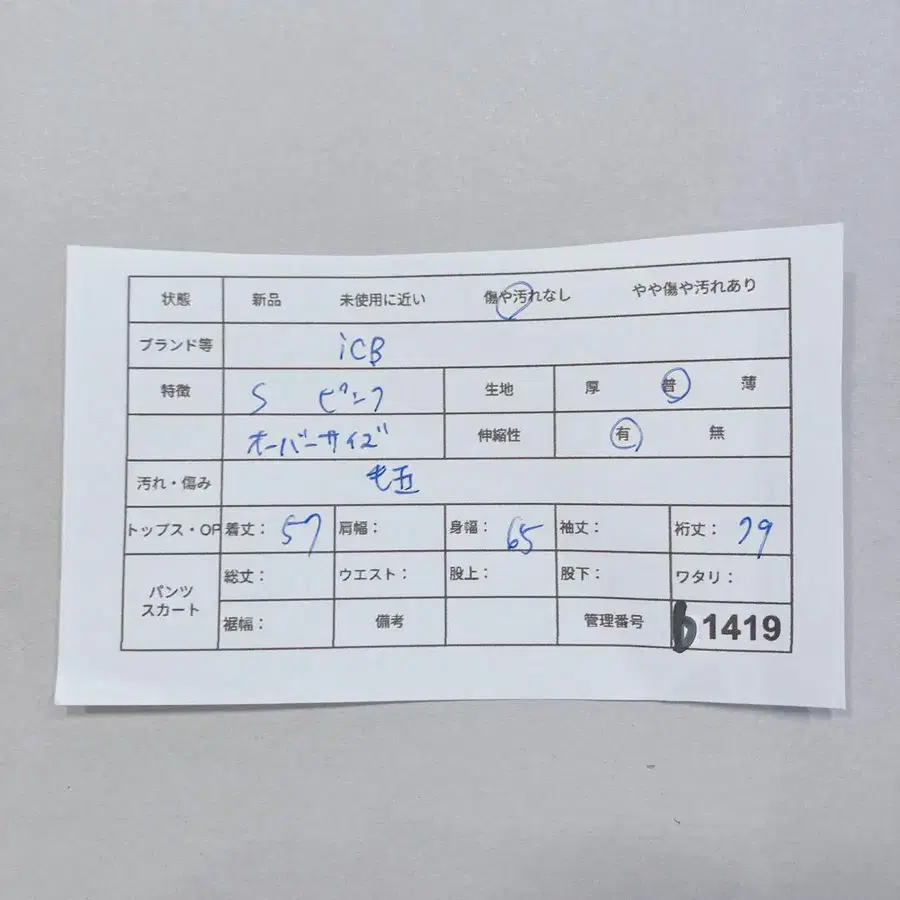 状態 新品 未使用に近い 傷や汚れなし やや傷や汚れあり
ブランド等 iCB
特徴 S ピンク 生地 厚 普 薄
オーバーサイズ 伸縮性 有 無
汚れ・傷み 毛玉
トップス・OP 着丈: 57 肩幅: 身幅: 65 袖丈: 裄丈: 79
パンツ スカート 総丈: ウエスト: 股上: 股下: ワタリ:
裾幅: 備考 管理番号 61419